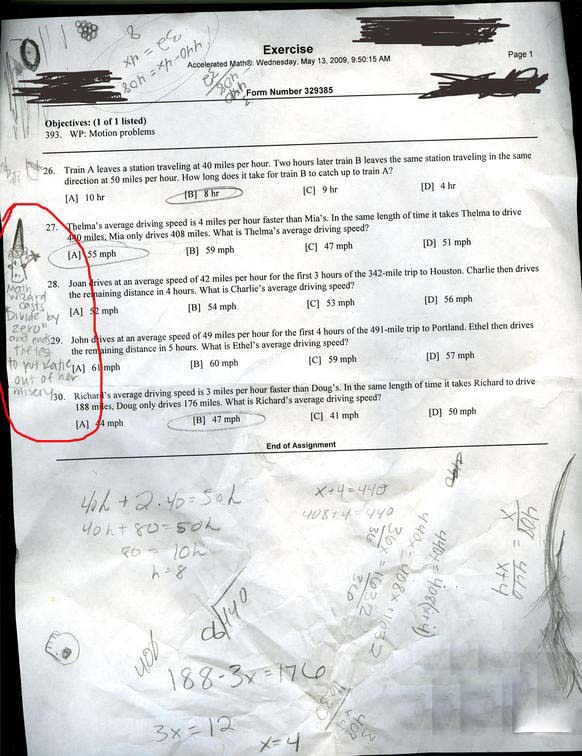 8
32 = 4x
440-4x = 408
440
408
32
Exercise
Accelerated Math®: Wednesday, May 13, 2009, 9:50:15 AM
Page 1
Form Number 329385
Objectives: (1 of 1 listed)
393. WP: Motion problems
26. Train A leaves a station traveling at 40 miles per hour. Two hours later train B leaves the same station traveling in the same
direction at 50 miles per hour. How long does it take for train B to catch up to train A?
[A] 10 hr [B] 8 hr [C] 9 hr [D] 4 hr
27. Thelma's average driving speed is 4 miles per hour faster than Mia's. In the same length of time it takes Thelma to drive
440 miles, Mia only drives 408 miles. What is Thelma's average driving speed?
[A] 55 mph [B] 59 mph [C] 47 mph [D] 51 mph
28. Joan drives at an average speed of 42 miles per hour for the first 3 hours of the 342-mile trip to Houston. Charlie then drives
the remaining distance in 4 hours. What is Charlie's average driving speed?
[A] 52 mph [B] 54 mph [C] 53 mph [D] 56 mph
29. John drives at an average speed of 49 miles per hour for the first 4 hours of the 491-mile trip to Portland. Ethel then drives
the remaining distance in 5 hours. What is Ethel's average driving speed?
[A] 61 mph [B] 60 mph [C] 59 mph [D] 57 mph
30. Richard's average driving speed is 3 miles per hour faster than Doug's. In the same length of time it takes Richard to drive
188 miles, Doug only drives 176 miles. What is Richard's average driving speed?
[A] 44 mph [B] 47 mph [C] 41 mph [D] 50 mph
Math
wizard
casts
"Divide by
zero"
and ends
the test
to put Katie
out of her
misery
End of Assignment
40h + 2·40 = 50h
40h + 80 = 50h
80 = 10h
h = 8
x+4=440
408+4=440
440
408/x = 440/x+4
440x = 408(x+4)
440x = 408x + 1632
36x = 1632
408
440
188-3x=176
3x = 12
x=4
1632
408
x 4